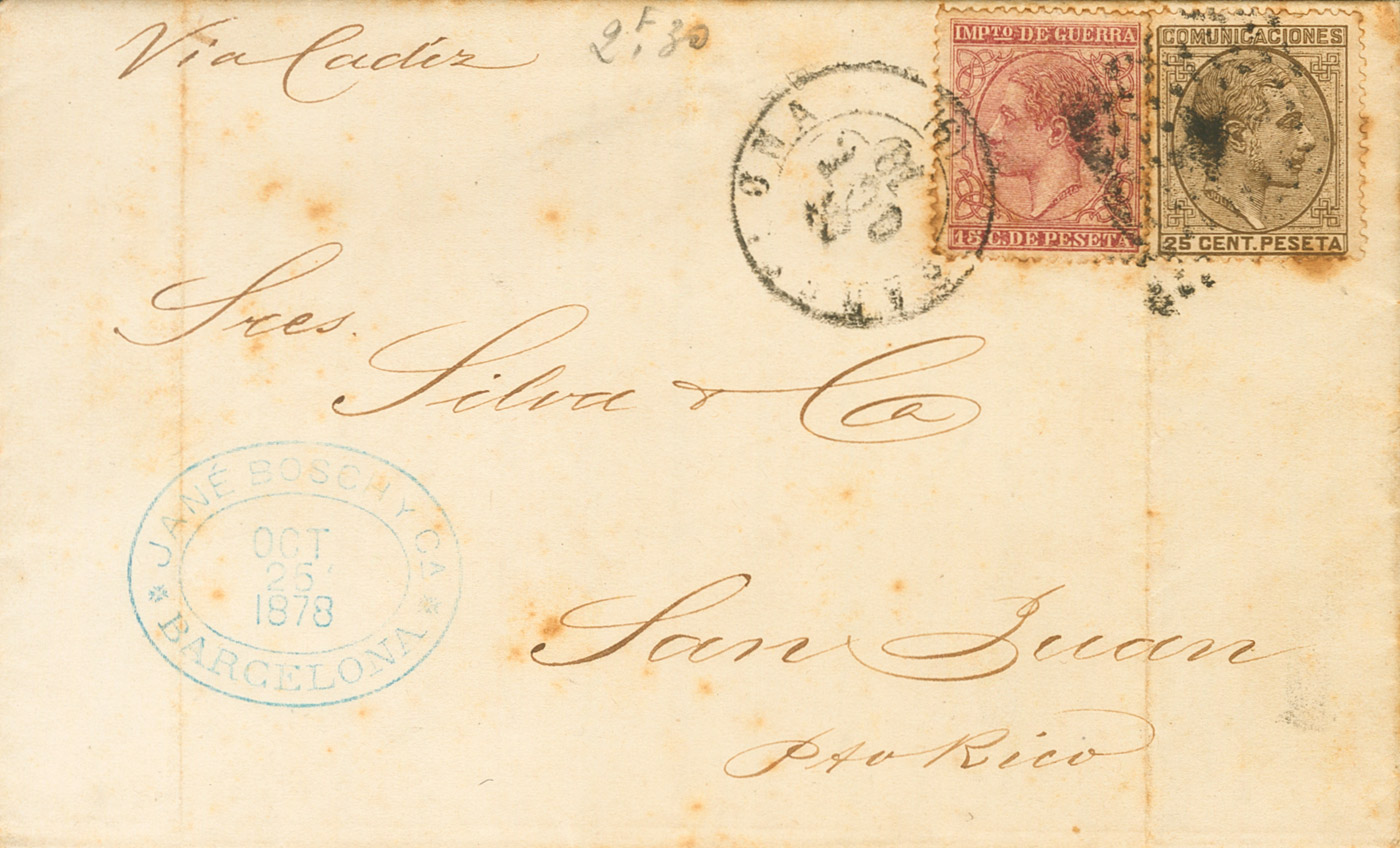 Via Cadiz
2.F 30
IMPTO. DE GUERRA
15 C. DE PESETA
COMUNICACIONES
25 CENT. PESETA
Sres.
Silva & Ca
JANÉ BOSCH Y CA
OCT
25
1878
BARCELONA
San Juan
Pto Rico